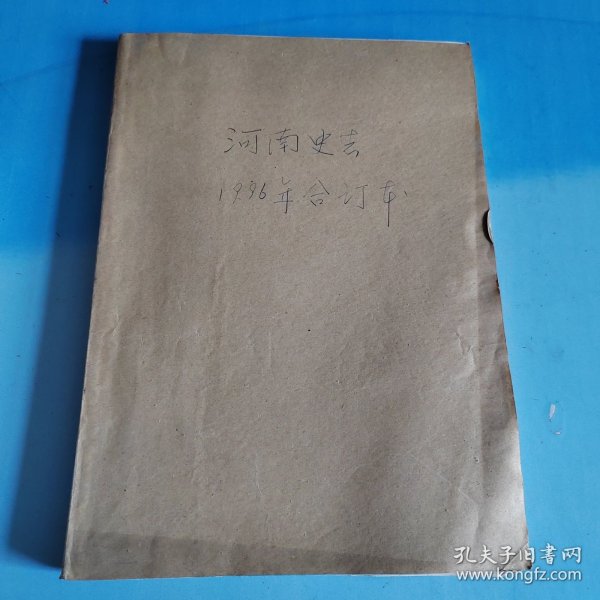 河南史志
1996年合订本
孔夫子旧书网
www.kongfz.com